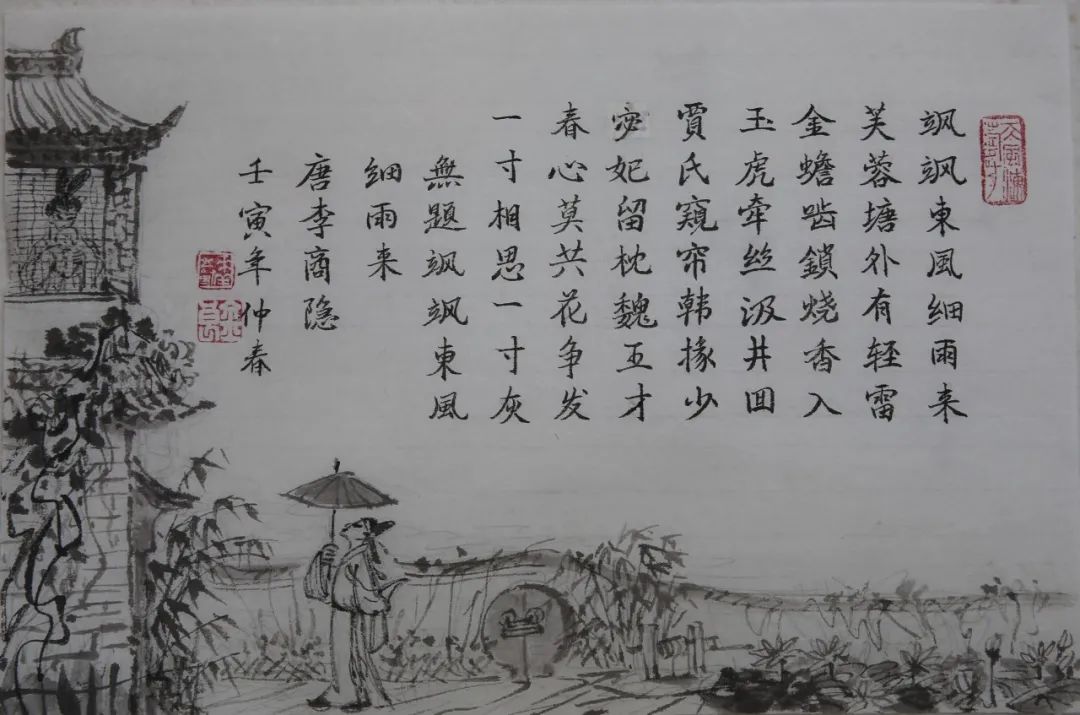 飒飒東風细雨来
芙蓉塘外有轻雷
金蟾啮鎖烧香入
玉虎牵丝汲井回
賈氏窺帘韩掾少
宓妃留枕魏王才
春心莫共花争发
一寸相思一寸灰
無题飒飒東風
细雨来
唐李商隐
壬寅年仲春